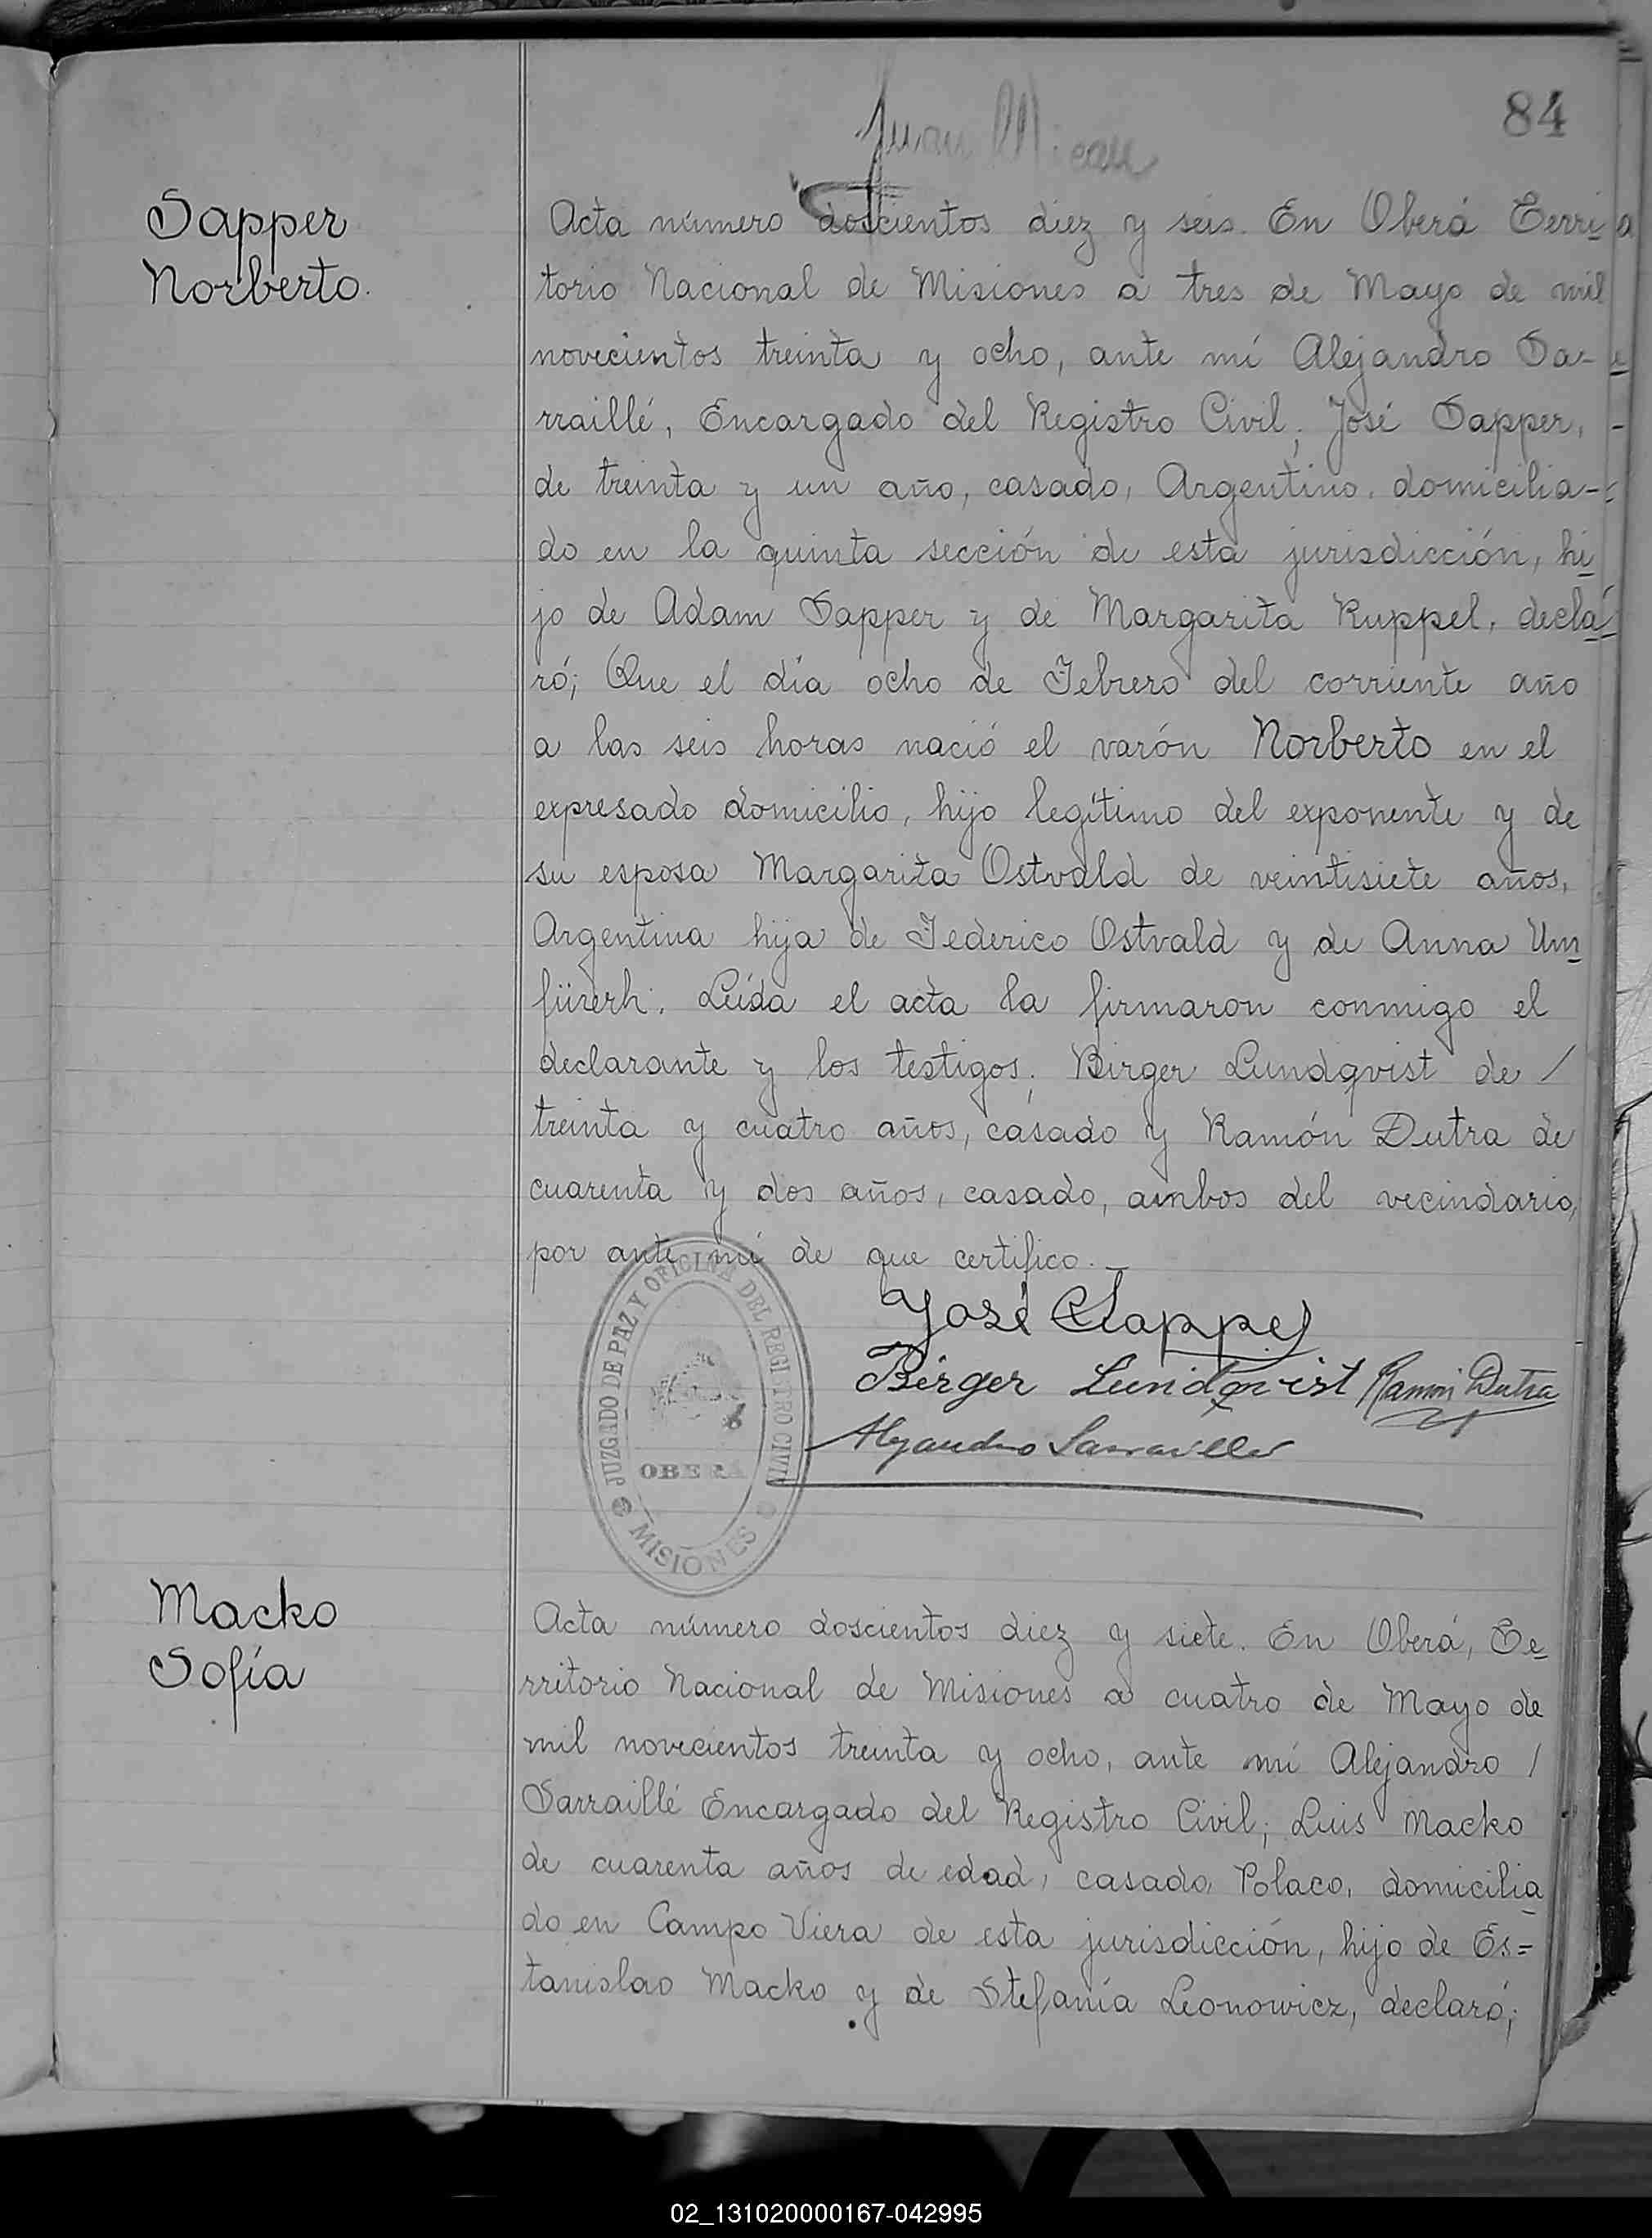 84
Juan
Sapper
Norberto.
Acta número doscientos diez y seis. En Oberá Terri
torio Nacional de Misiones a tres de Mayo de mil
novecientos treinta y ocho, ante mí Alejandro Sa-
rraillé, Encargado del Registro Civil; José Sapper,
de treinta y un año, casado, Argentino, domicilia-
do en la quinta sección de esta jurisdicción, hi
jo de Adam Sapper y de Margarita Ruppel, decla
ró; Que el día ocho de Febrero del corriente año
a las seis horas nació el varón Norberto en el
expresado domicilio, hijo legítimo del exponente y de
su esposa Margarita Ostvald de veintisiete años,
Argentina hija de Federico Ostvald y de Anna Um
fürerh. Leída el acta la firmaron conmigo el
declarante y los testigos; Birger Lundqvist de /
treinta y cuatro años, casado y Ramón Dutra de
cuarenta y dos años, casado, ambos del vecindario,
por ante mí de que certifico.—
José Sapper
Birger Lundqvist Ramon Dutra
Alejandro Sarraillé
JUZGADO DE PAZ Y OFICINA DEL REGISTRO CIVIL
OBERÁ
MISIONES
Macko
Sofía
Acta número doscientos diez y siete. En Oberá, Te
rritorio Nacional de Misiones a cuatro de Mayo de
mil novecientos treinta y ocho, ante mí Alejandro /
Sarraillé Encargado del Registro Civil; Luis Macko
de cuarenta años de edad, casado, Polaco, domicilia
do en Campo Viera de esta jurisdicción, hijo de Es=
tanislao Macko y de Stefanía Leonowicz, declaró;
02_131020000167-042995